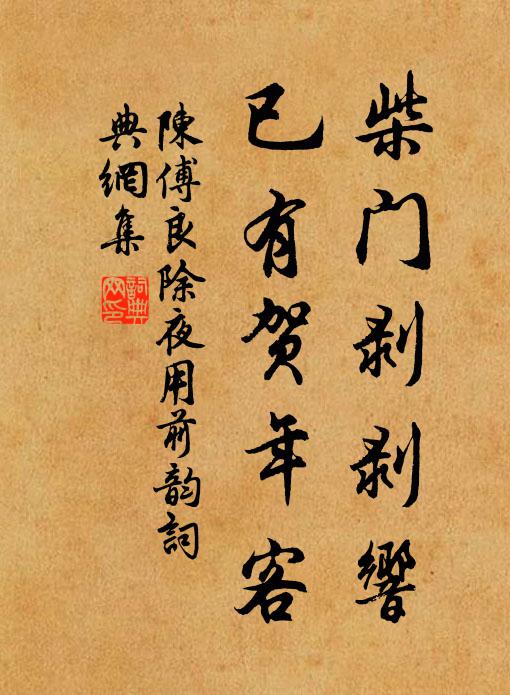 柴门剥剥響
已有贺年客
陳傅良除夜用前韵詞
典網集
詞典
网印